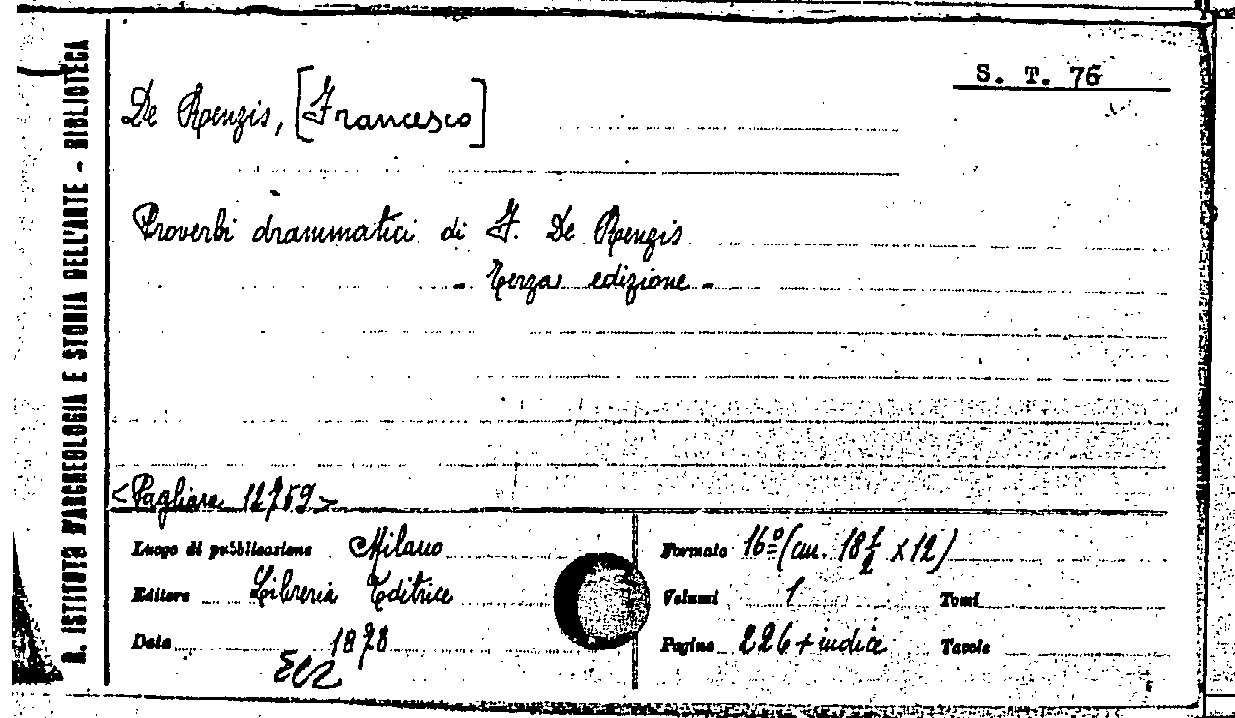 R. ISTITUTO D'ARCHEOLOGIA E STORIA DELL'ARTE - BIBLIOTECA
S. T. 76
De Renzis, [Francesco]
Proverbi drammatici di F. De Renzis
- Terza edizione -
<Pagliara 12759>
Luogo di pubblicazione Milano
Editore Libreria Editrice
Data 1878
Formato 16º (cm. 18 1/2 x 12)
Volumi 1 Tomi
Pagine 226 + indice Tavole